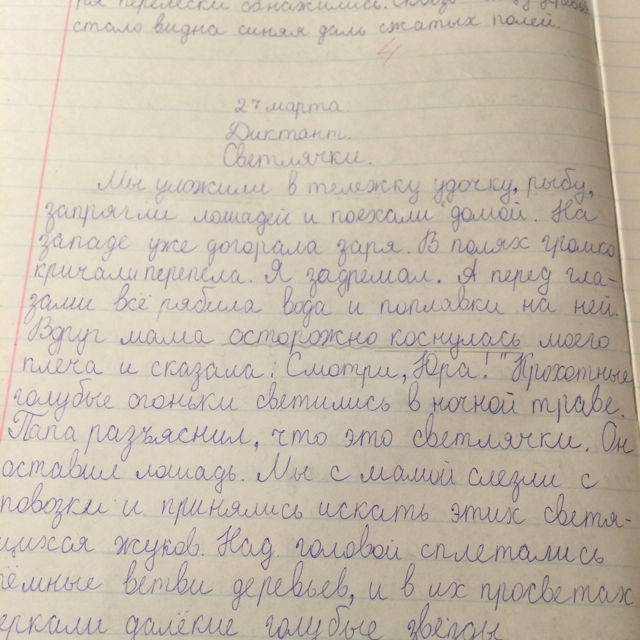 перелески обнажились.
стало видна синяя даль сжатых полей.
4
27 марта
Диктант.
Светлячки.
Мы уложили в тележку удочку, рыбу,
запрягли лошадей и поехали домой. На
западе уже догорала заря. В полях громко
кричали перепела. Я задремал. А перед гла-
зами всё рябила вода и поплавки на ней.
Вдруг мама осторожно коснулась моего
плеча и сказала: Смотри, Юра!" Крохотные
голубые огоньки светились в ночной траве.
Папа разъяснил, что это светлячки. Он
оставил лошадь. Мы с мамой слезли с
повозки и принялись искать этих светя-
щихся жуков. Над головой сплетались
тёмные ветви деревьев, и в их просветах
еркали далёкие голубые звёзды